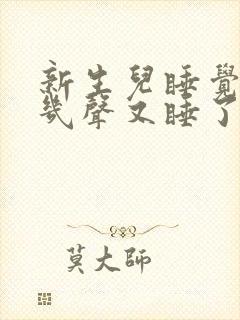 新生兒睡覺
幾聲又睡了
莫大師